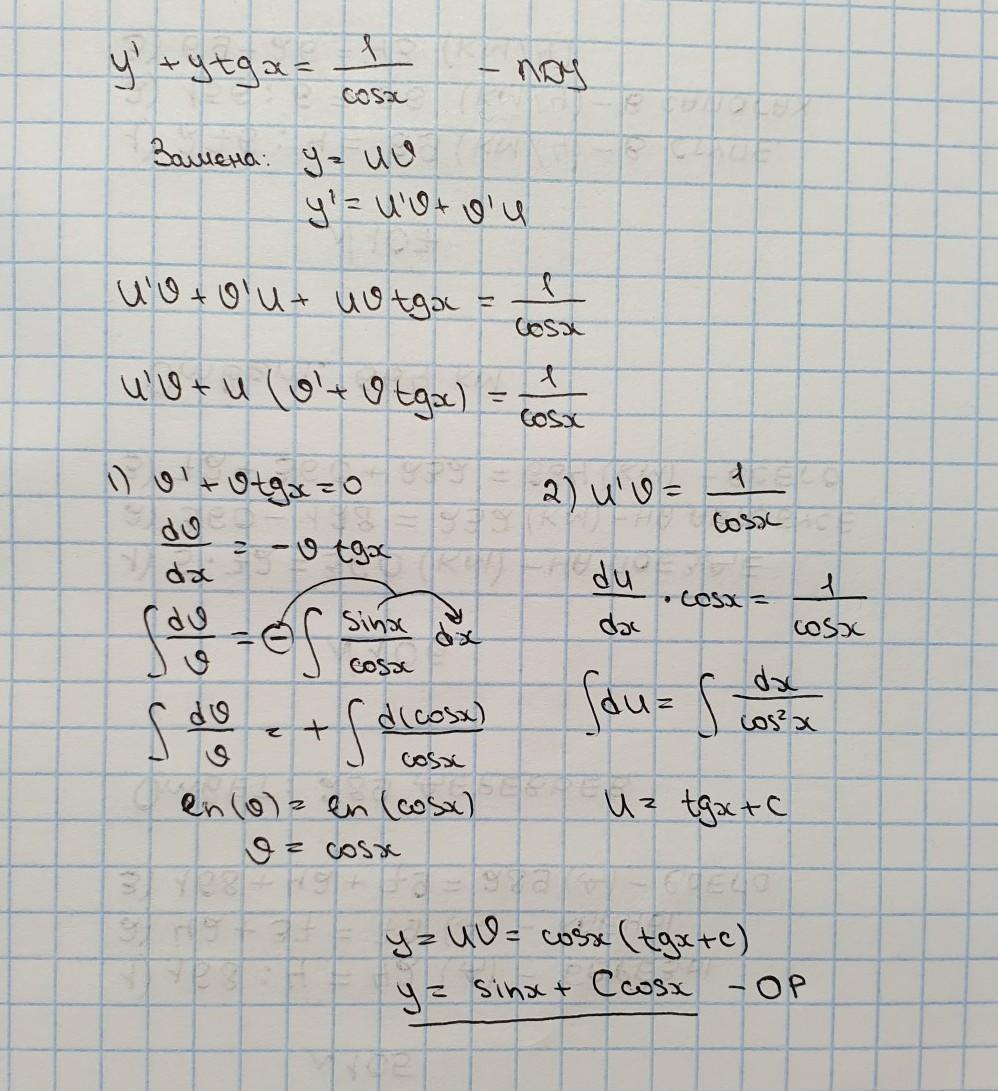 y' + y tg x = 1/cosx - ЛДУ
Замена: y = uϑ
y' = u'ϑ + ϑ'u
u'ϑ + ϑ'u + uϑ tgx = 1/cosx
u'ϑ + u (ϑ' + ϑ tgx) = 1/cosx
1) ϑ' + ϑtgx = 0
dϑ/dx = -ϑ tgx
∫ dϑ/ϑ = - ∫ sinx/cosx dx
∫ dϑ/ϑ = + ∫ d(cosx)/cosx
ln(ϑ) = ln(cosx)
ϑ = cosx
2) u'ϑ = 1/cosx
du/dx · cosx = 1/cosx
∫du = ∫ dx/cos²x
u = tgx + c
y = uϑ = cosx (tgx + c)
y = sinx + C cosx - ОР